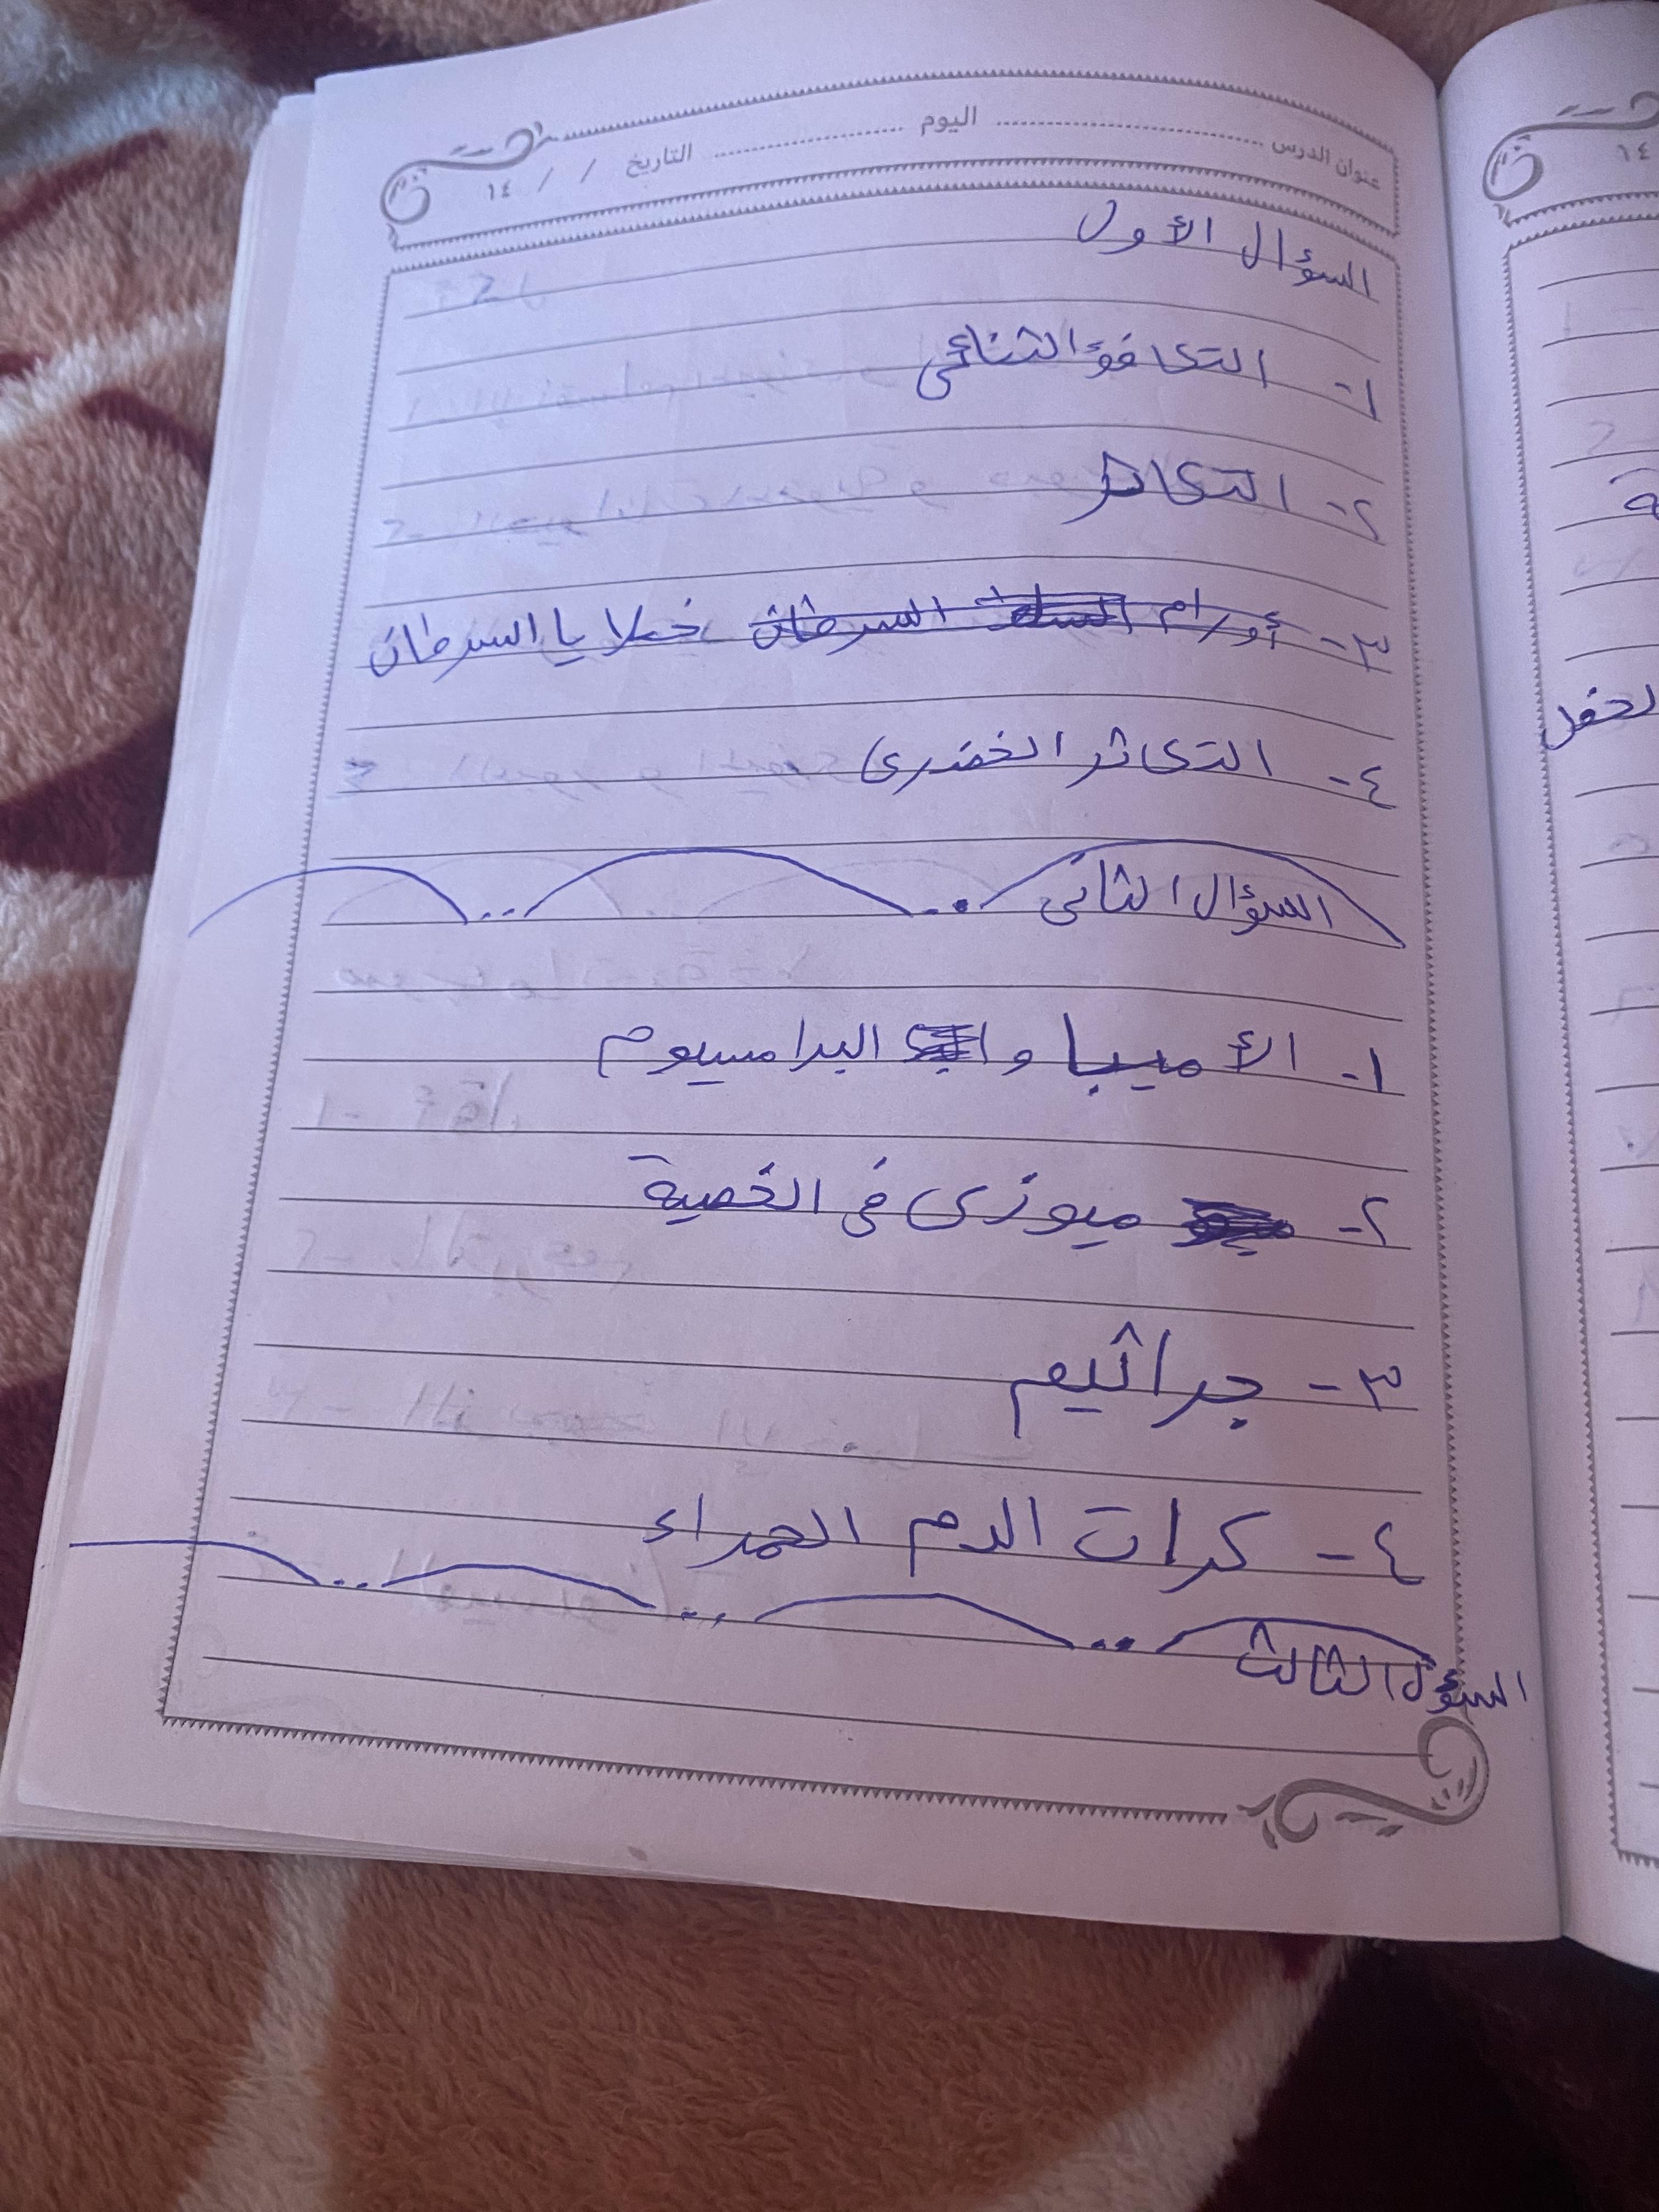 عنوان الدرس .................... اليوم .................... التاريخ / / ١٤
السؤال الأول
١- التكافؤ الثنائى
٢- التكاثر
٣- أورام السرطان خلايا السرطان
٤- التكاثر الخضرى
السؤال الثانى
١- الأميبا و البرامسيوم
٢- ميوزى فى الخصية
٣- جراثيم
٤- كرات الدم الحمراء
السؤال الثالث